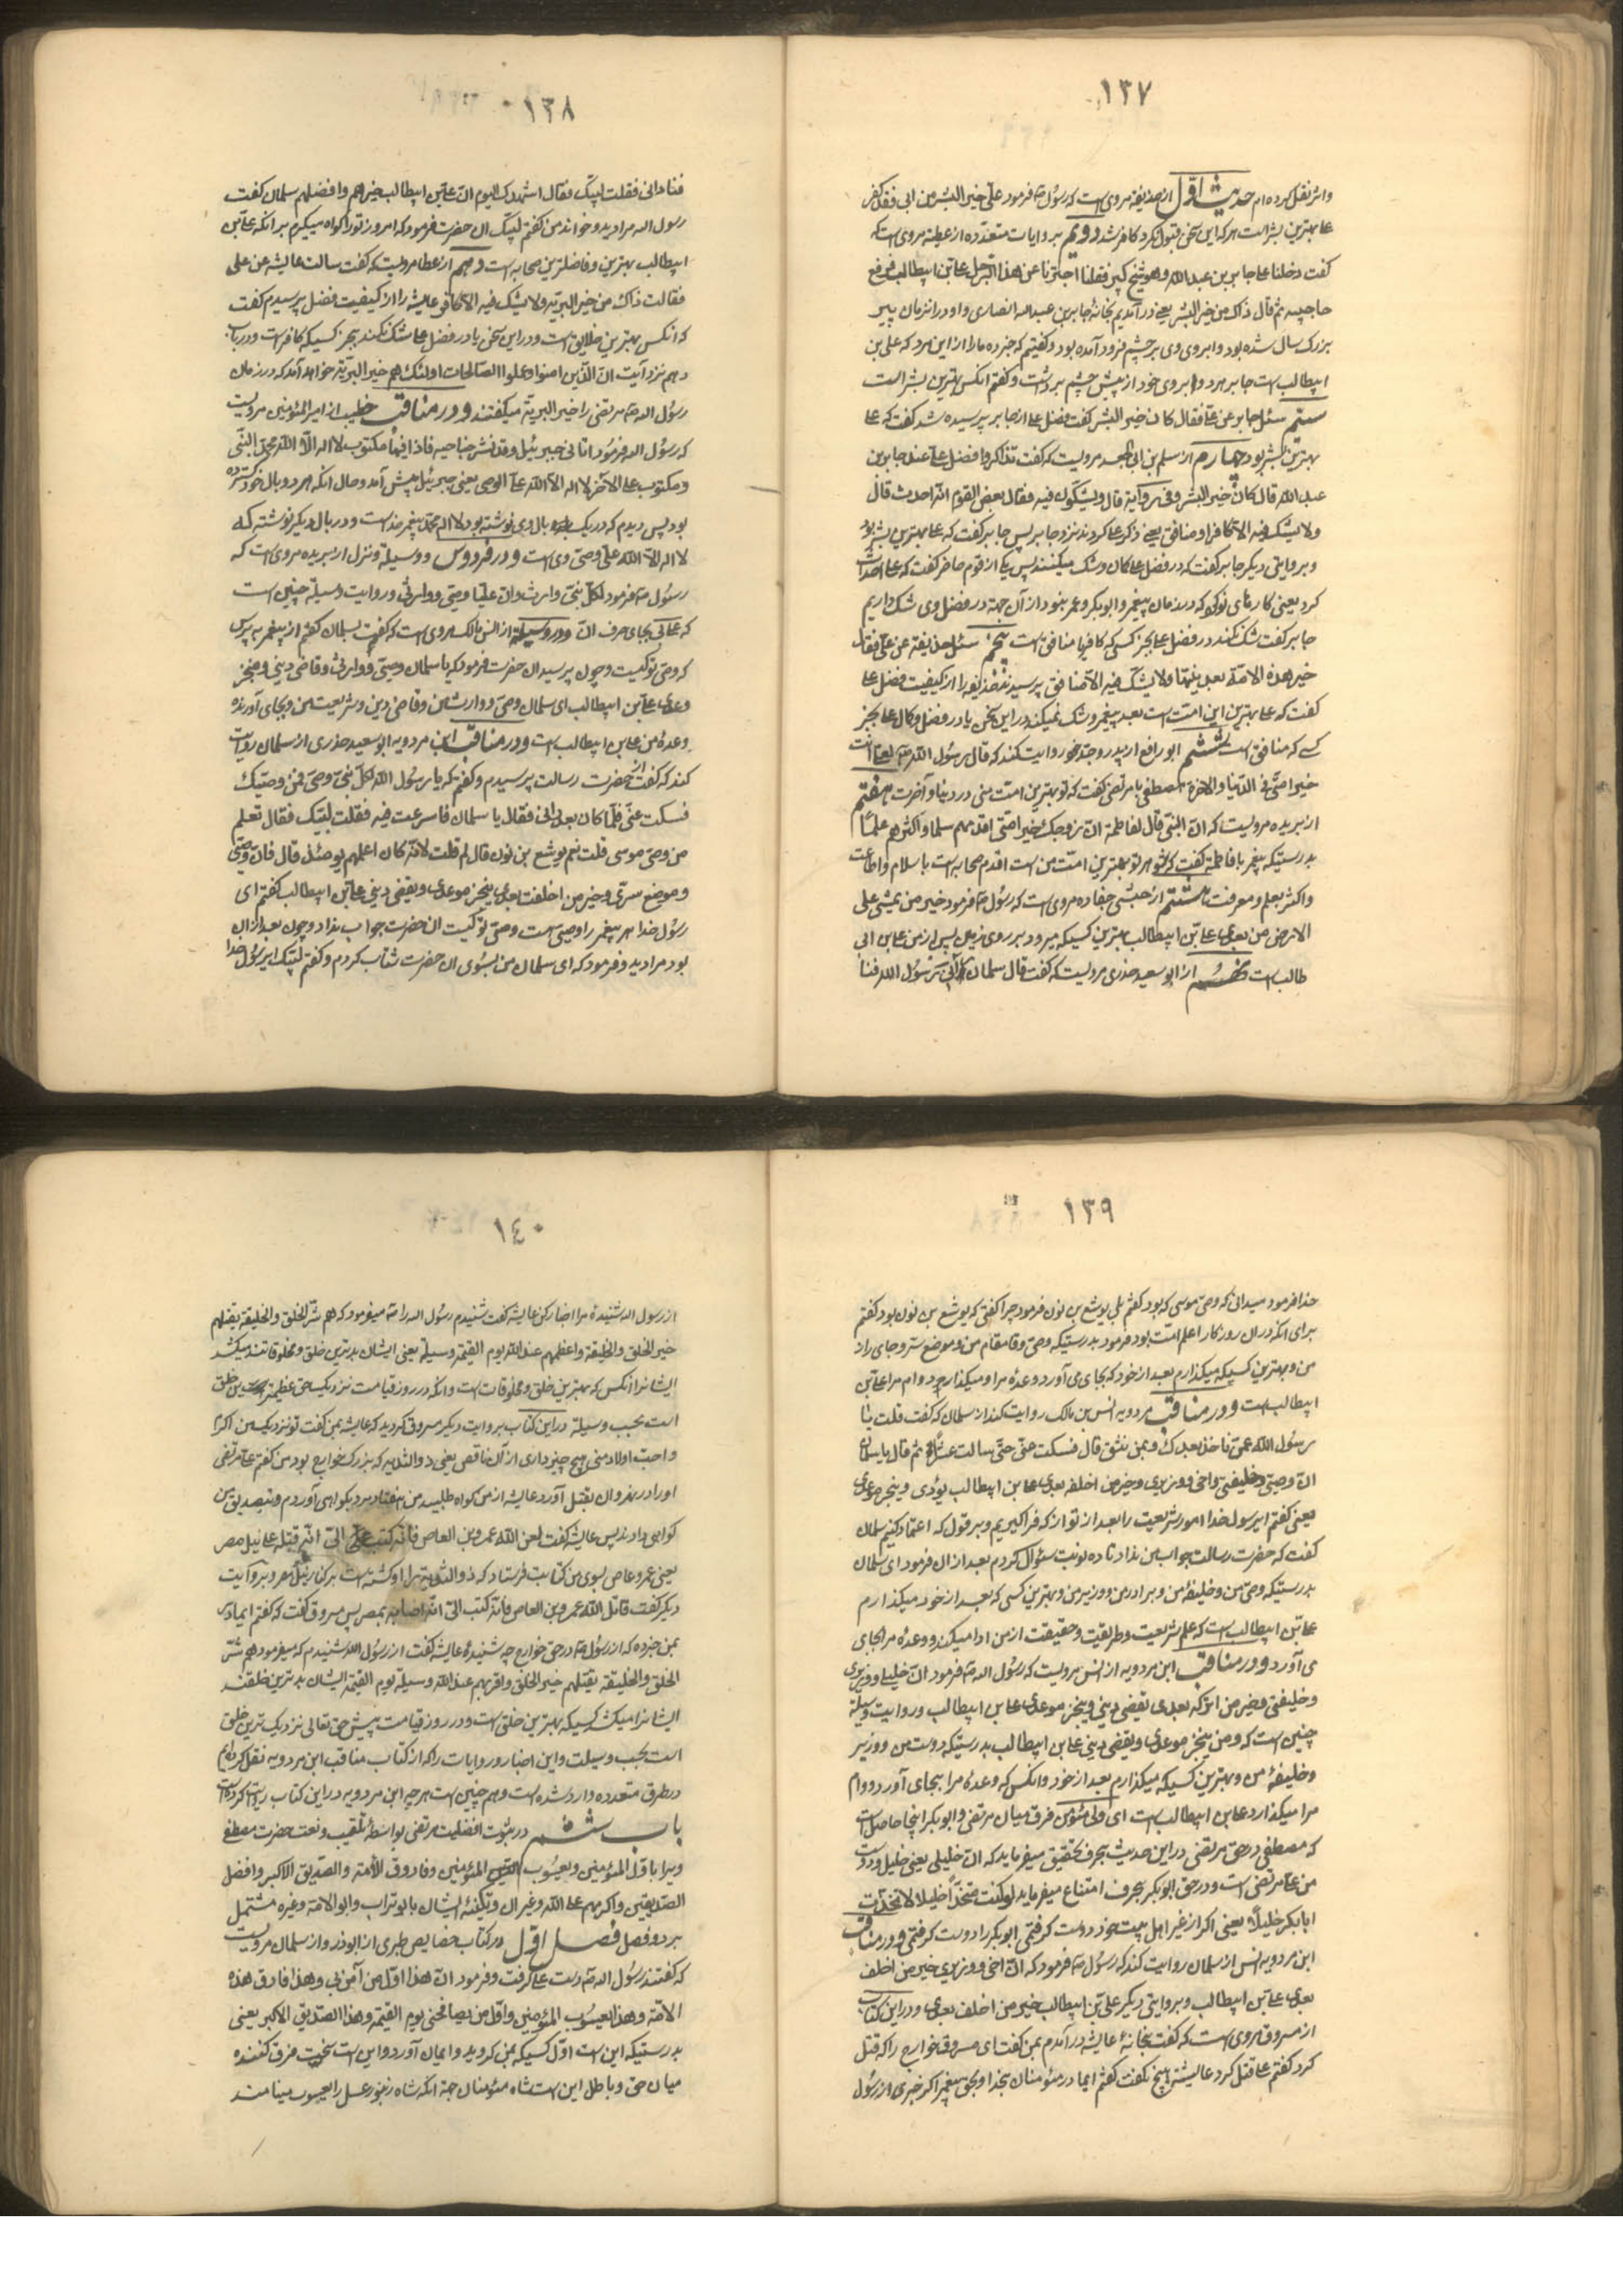 ١٣٧
واثر نقل کرده ام حدیث اول از حذیفه مروی است که رسول ص فرمود علی خیر البشر من ابی فقد کفر
علی بهترین بشر است هر که این سخن قبول نکرد کافر شد دویم بروایات متعدده از عطیه مروی است که
گفت دخلنا علی جابر بن عبد الله و هو شیخ کبیر فقلنا اخبرنا عن هذا الرجل علی بن ابیطالب فرفع
حاجبیه ثم قال ذاک من خیر البشر یعنی در آمدیم بخانه جابر بن عبد الله انصاری و او در انزمان پیر
بزرک سال شده بود و ابروی وی بر چشم فرود آمده بود و گفتیم که خبر ده ما را از این مرد که علی بن
ابیطالب است جابر هر دو ابروی خود از پیش چشم برداشت و گفتم انکس بهترین بشر است
سیّم سئل جابر عن علی فقال کان خیر البشر گفت فضل علی از جابر پرسیده شد گفت که علی
بهترین بشر بود چهارم از سلم بن ابی الجعد مرویست که گفت تذاکروا فضل علی عند جابر بن
عبد الله قال کان خیر البشر وفی روایة قال ویشکون فیه فقال بعض القوم انه احدث قال
ولا یشک فیه الا کافر او منافق یعنی ذکر علی کردند نزد جابر پس جابر گفت که علی بهترین بشر بود
و بروایتی دیگر جابر گفت که در فضل علی کان و شک میکنند پس یکی از قوم حاضر گفت که علی احداث
کرد یعنی کارهای نو که در زمان پیغمبر و ابوبکر و عمر نبود از آن جهة در فضل وی شک داریم
جابر گفت شک نکند در فضل علی بجز کسی که کافر یا منافق است پنجم سئل حذیفه عن علی فقال
خیر هذه الامة بعد نبیها ولا یشک فیه الا منافق پرسیدند حذیفه را از کیفیت فضل علی
گفت که علی بهترین این امت است بعد پیغمبر و شک نمیکند در این سخن یا در فضل و کمال علی بجز
کسی که منافق است ششم ابو رافع از پدر و جد خود روایت کند که قال رسول الله ص لعلی انت
خیر امتی فی الدنیا والاخرة مصطفی با مرتضی گفت که تو بهترین امت منی در دنیا و آخرت هفتم
از بریده مرویست که ان النبی قال لفاطمة ان زوجک خیر امتی اقدمهم سلما واکثرهم علماً
بدرستیکه پیغمبر با فاطمه گفت که شوهر تو بهترین امت من است اقدم صحابه است باسلام و اطاعت
واکثر بعلم و معرفت هشتم از حبشی جناده مروی است که رسول ص فرمود خیر من یمشی علی
الارض من بعدی علی بن ابیطالب بهترین کسیکه میرود بر روی زمین پس از من علی بن ابی
طالب است نهم از ابو سعید خدری مرویست که گفت قال سلمان رآنی رسول الله فنا
١٣٨
فنادانی فقلت لبیک فقال اشهدک الیوم ان علی بن ابیطالب خیرهم وافضلهم سلمان گفت
رسول الله مرا دید و خواند من گفتم لبیک ان حضرت فرمود که امروز تو را گواه میگیرم بر انکه علی بن
ابیطالب بهترین و فاضلترین صحابه است دهم از عطا مرویست که گفت سالت عایشه عن علی
فقالت ذاک من خیر البریة ولا یشک فیه الا کافر عایشه را از کیفیت فضل پرسیدم گفت
که انکس بهترین خلایق است و در این سخن یا در فضل علی شک نکند بجز کسیکه کافر است و در باب
دهم نزد آیت ان الذین امنوا وعملوا الصالحات اولئک هم خیر البریة خواهد آمد که در زمان
رسول الله ص مرتضی را خیر البریة میگفتند و در مناقب خطیب از امیر المؤمنین مرویست
که رسول الله فرمود اتانی جبرئیل وقد نشر جناحیه فاذا فیها مکتوب لا اله الا الله محمد النبی
ومکتوب علی الاخر لا اله الا الله علی الوصی یعنی جبرئیل پیش آمد و حال انکه هر دو بال خود گسترده
بود پس دیدم که در یک بال وی نوشته بود لا اله محمد پیغمبر خداست و در بال دیگر نوشته که
لا اله الا الله علی وصی وی است و در فردوس و وسیله و نزل از بریده مروی است که
رسول ص فرمود لکل نبی وارث وان علیا وصیی ووارثی و روایت وسیله چنین است
که علی بجای حرف ان و در وسیله از انس مالک مروی است که گفت بسلمان گفتم از پیغمبر بپرس
که وصی تو کیست و چون پرسید ان حضرت فرمود که یا سلمان وصیی ووارثی وقاضی دینی ومنجز
وعدی علی بن ابیطالب ای سلمان وصی و وارث من وقاضی دین و شریعت من و بجای آورنده
وعده من علی بن ابیطالب است و در مناقب ابن مردویه ابو سعید خدری از سلمان روایت
کند که گفت از حضرت رسالت پرسیدم و گفتم که یا رسول الله لکل نبی وصی فمن وصیک
فسکت عنی فلما کان بعد رانی فقال یا سلمان فاسرعت فیه فقلت لبیک فقال تعلم
من وصی موسی قلت نعم یوشع بن نون قال لم قلت لانه کان اعلمهم یومئذ قال فان وصیی
وموضع سری وخیر من اخلفت بعدی ینجز موعدی ویقضی دینی علی بن ابیطالب گفتم ای
رسول خدا هر پیغمبر را وصی هست وصی تو کیست ان حضرت جواب نداد و چون بعد از ان
بود مرا دید و فرمود که ای سلمان من بسوی ان حضرت شتاب کردم و گفتم لبیک ای رسول خدا
١٣٩
خدا فرمود میدانی که وصی موسی که بود گفتم بلی یوشع بن نون فرمود چرا گفتی که یوشع بن نون بود گفتم
برای انکه در ان روزکار اعلم امت بود فرمود بدرستیکه وصی و قامقام من و موضع ستر و جای راز
من و بهترین کسیکه میگذارم بعد از خود که بجای می آورد وعده مرا و میگذارد وام مرا علی بن
ابیطالب است و در مناقب مردویه انس بن مالک روایت کند از سلمان که گفت قلت یا
رسول الله عمن ناخذ بعدک وبمن نثق قال فسکت عنی حتی سالت عشراً ثم قال یا سلمان
ان وصیی وخلیفتی واخی ووزیری وخیر من اخلفه بعدی علی بن ابیطالب یؤدی وینجز موعدی
یعنی گفتم ای رسول خدا امور شریعت را بعد از تو از که فرا گیریم و بر قول که اعتماد کنیم سلمان
گفت که حضرت رسالت جواب من نداد تا ده نوبت سئوال کردم بعد از ان فرمود ای سلمان
بدرستیکه وصی من وخلیفهٔ من و برادر من و وزیر من و بهترین کسی که بعد از خود میگذارم
علی بن ابیطالب است که علم شریعت و طریقت و حقیقت از من ادا میکند و وعده مرا بجای
می آورد و در مناقب ابن مردویه از انس مرویست که رسول الله ص فرمود ان خلیلی ووزیری
وخلیفتی وخیر من اترکه بعدی یقضی دینی وینجز موعدی علی بن ابیطالب و روایت وسیله
چنین است که ومن ینجز موعدی ویقضی دینی علی بن ابیطالب بدرستیکه دوست من و وزیر
وخلیفهٔ من و بهترین کسیکه میگذارم بعد از خود و انکس که وعدهٔ مرا بجای آورد و وام
مرا میگذارد علی بن ابیطالب است ای ولی مؤمن فرق میان مرتضی و ابوبکر اینجا حاصل است
که مصطفی در حق مرتضی در این حدیث بحرف تحقیق میفرماید که ان خلیلی یعنی خلیل و دوست
من علی مرتضی است و در حق ابوبکر بحرف امتناع میفرماید لو کنت متخذاً خلیلا لاتخذت
ابابکر خلیلاً یعنی اکر از غیر اهل بیت خود دوست گرفتمی ابوبکر را دوست گرفتمی و در مناقب
ابن مردویه انس از سلمان روایت کند که رسول ص فرمود که ان اخی ووزیری خیر من اخلف
بعدی علی بن ابیطالب و بروایتی دیگر علی بن ابیطالب خیر من اخلف بعدی و در این کتاب
از مسروق مروی است که گفت بخانهٔ عایشه در آمدم بمن گفت ای مسروق خوارج را که قتل
کرد گفتم علی قتل کرد عایشه هیچ نگفت گفتم ایما در مؤمنان بخدا و بحق پیغمبر اکر خبری از رسول
١٤٠
از رسول الله شنیدهٔ مرا اخبار کن عایشه گفت شنیدم رسول الله را ص میفرمود که هم شر الخلق والخلیقة یقتلهم
خیر الخلق والخلیقة واعظمهم عند الله یوم القیمة وسیلة یعنی ایشان بدترین خلق و مخلوقاتند میکشد
ایشانرا انکس که بهترین خلق و مخلوقات است و انکه در روز قیامت نزدیک حق عظیمترین خلق
است بحسب وسیله در این کتاب بروایت دیگر مسروق گردید که عایشه بمن گفت تو نزدیک من اکرم
واحب اولاد منی هیچ چیز داری از آن ناقص یعنی ذوالثدیه که بزرک خوارج بود من گفتم علی مرتضی
او را در نهروان بقتل آورد عایشه از من گواه طلبید من هفتاد مرد بگواهی آوردم و بتصدیق من
گواهی دادند پس عایشه گفت لعن الله عمرو بن العاص فانه کتب الی انه قتله علی نیل مصر
یعنی عمرو عاص بسوی من کتابت فرستاد که ذو الثدیه را او کشته است بر کنار نیل مصر و بروایت
دیگر گفت قاتل الله عمرو بن العاص فانه کتب الی انه اصابه بمصر پس مسروق گفت که گفتم ایمادر
بمن خبر ده که از رسول ص در حق خوارج چه شنیدهٔ عایشه گفت از رسول الله شنیدم که میفرمود هم شر
الخلق والخلیقة یقتلهم خیر الخلق واقربهم عند الله وسیلة یوم القیمة ایشان بدترین خلقند
ایشانرا میکشد کسیکه بهترین خلق است و در روز قیامت پیش حق تعالی نزدیک ترین خلق
است بحسب وسیلت و این اخبار و روایات را که از کتاب مناقب ابن مردویه نقل کرده ایم
در طرق متعدده وارد شده است و هم چنین است هر چه ابن مردویه در این کتاب روایت کرده است
باب ششم در ثبوت افضلیت مرتضی بواسطهٔ تلقیب و نعت حضرت مصطفی
ویرا باول المؤمنین ویعسوب المؤمنین وفاروق الامة والصدیق الاکبر وافضل
الصدیقین واکرمهم علی الله وغیر ان وتکنیهٔ ایشان بابو تراب وابو الائمة وغیره مشتمل
بر دو فصل فصل اول در کتاب خصایص طبری از ابوذر و از سلمان مرویست
که گفتند رسول الله ص دست علی گرفت و فرمود ان هذا اول من آمن بی وهذا فاروق هذه
الامة وهذا یعسوب المؤمنین واول من یصافحنی یوم القیمة وهذا الصدیق الاکبر یعنی
بدرستیکه این است اول کسیکه بمن گروید و ایمان آورد و این است سخت فرق کننده
میان حق و باطل این است شاه مؤمنان جهة انکه شاه زنبور عسل را یعسوب مینامند